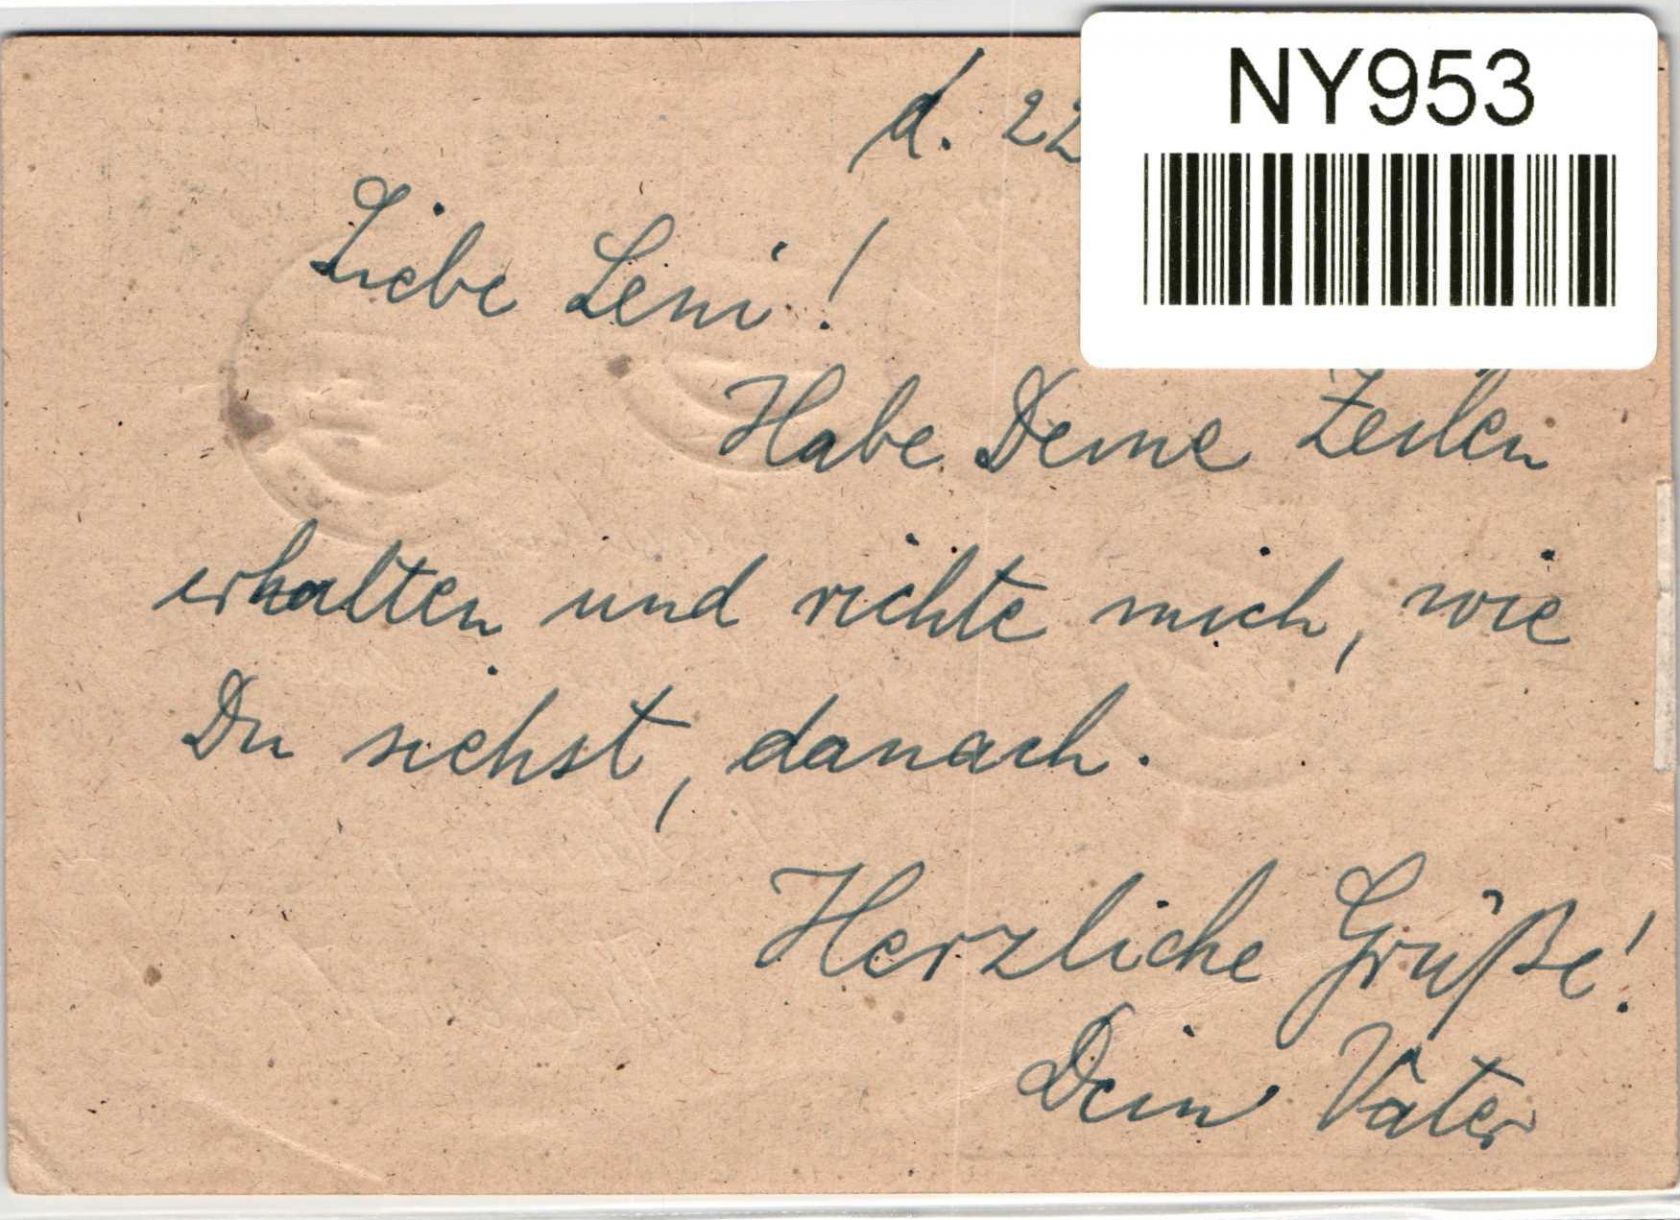 NY953
d. 22
Liebe Leni!
Habe Deine Zeilen
erhalten und richte mich, wie
Du siehst, danach.
Herzliche Grüße!
Dein Vater